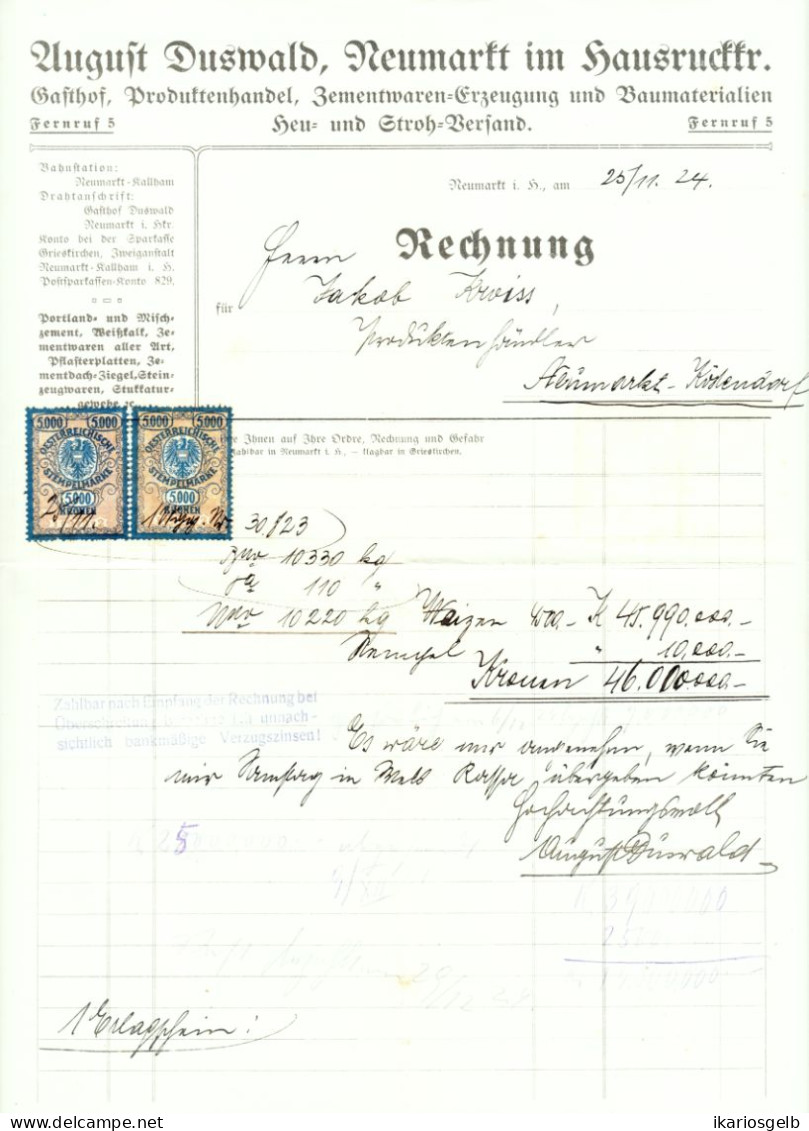 August Duswald, Neumarkt im Hausruckkr.
Gasthof, Produktenhandel, Zementwaren-Erzeugung und Baumaterialien
Fernruf 5
Heu- und Stroh-Versand.
Fernruf 5
Bahnstation:
Neumarkt-Kallham
Drahtanschrift:
Gasthof Duswald
Neumarkt i. Hkr.
Konto bei der Sparkasse
Grieskirchen, Zweiganstalt
Neumarkt-Kallham i. H.
Postsparkassen-Konto 829.
Portland- und Misch-
zement, Weißkalk, Ze-
mentwaren aller Art,
Pflasterplatten, Ze-
mentdach-Ziegel, Stein-
zeugwaren, Stukkatur-
gewebe ꝛc.
Neumarkt i. H., am 25/11. 24.
Rechnung
Herrn
für Jakob Kroiss,
Produktenhändler
Neumarkt-Köstendorf
Ihnen auf Ihre Ordre, Rechnung und Gefahr
zahlbar in Neumarkt i. H., – klagbar in Grieskirchen.
5.000 5.000
OESTERREICHISCHE
STEMPELMARKE
5.000
KRONEN
5.000 5.000
OESTERREICHISCHE
STEMPELMARKE
5.000
KRONEN
30823
10330 kg
110 "
10220 kg Waizen 4500.– K 45.990.000.–
Stempel " 10.000.–
Kronen 46.000.000.–
Zahlbar nach Empfang der Rechnung bei
sichtlich bankmäßige Verzugszinsen!
Es wäre mir angenehm, wenn Sie
mir Samstag in Wels Kassa übergeben könnten
Hochachtungsvoll
August Duswald
1 Erlagschein!
akpool
ikariosgelb